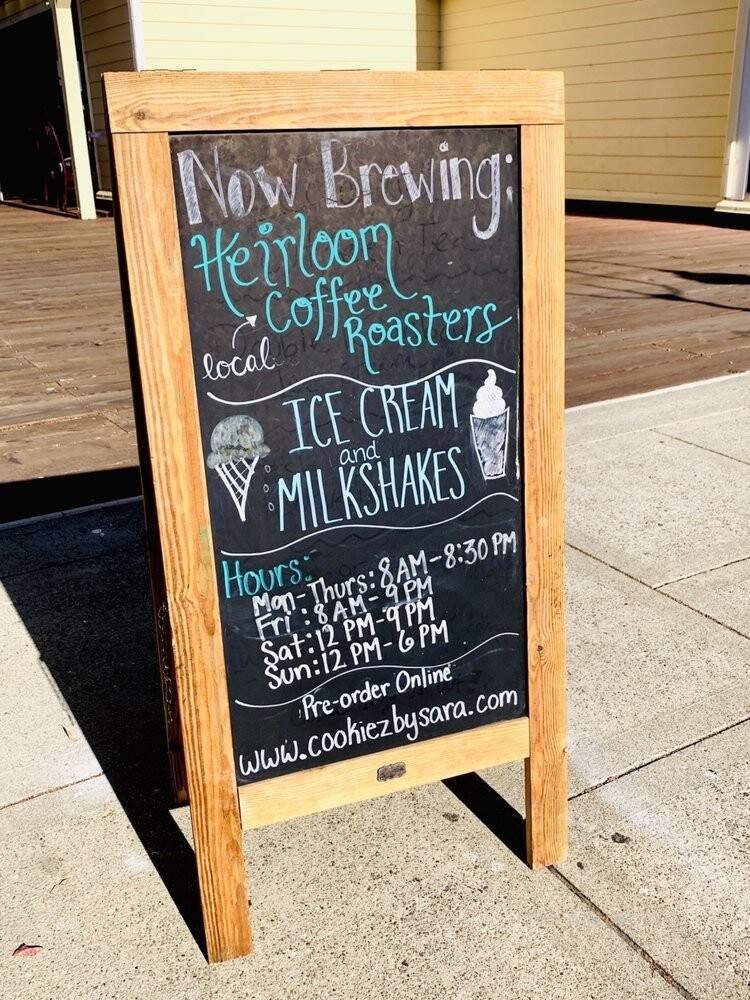 Now Brewing:
Heirloom
Coffee
Roasters
local
ICE CREAM
and
MILKSHAKES
Hours:
Mon-Thurs: 8AM-8:30 PM
Fri : 8 AM-9 PM
Sat: 12 PM-9 PM
Sun: 12 PM-6 PM
Pre-order Online
www.cookiezbysara.com